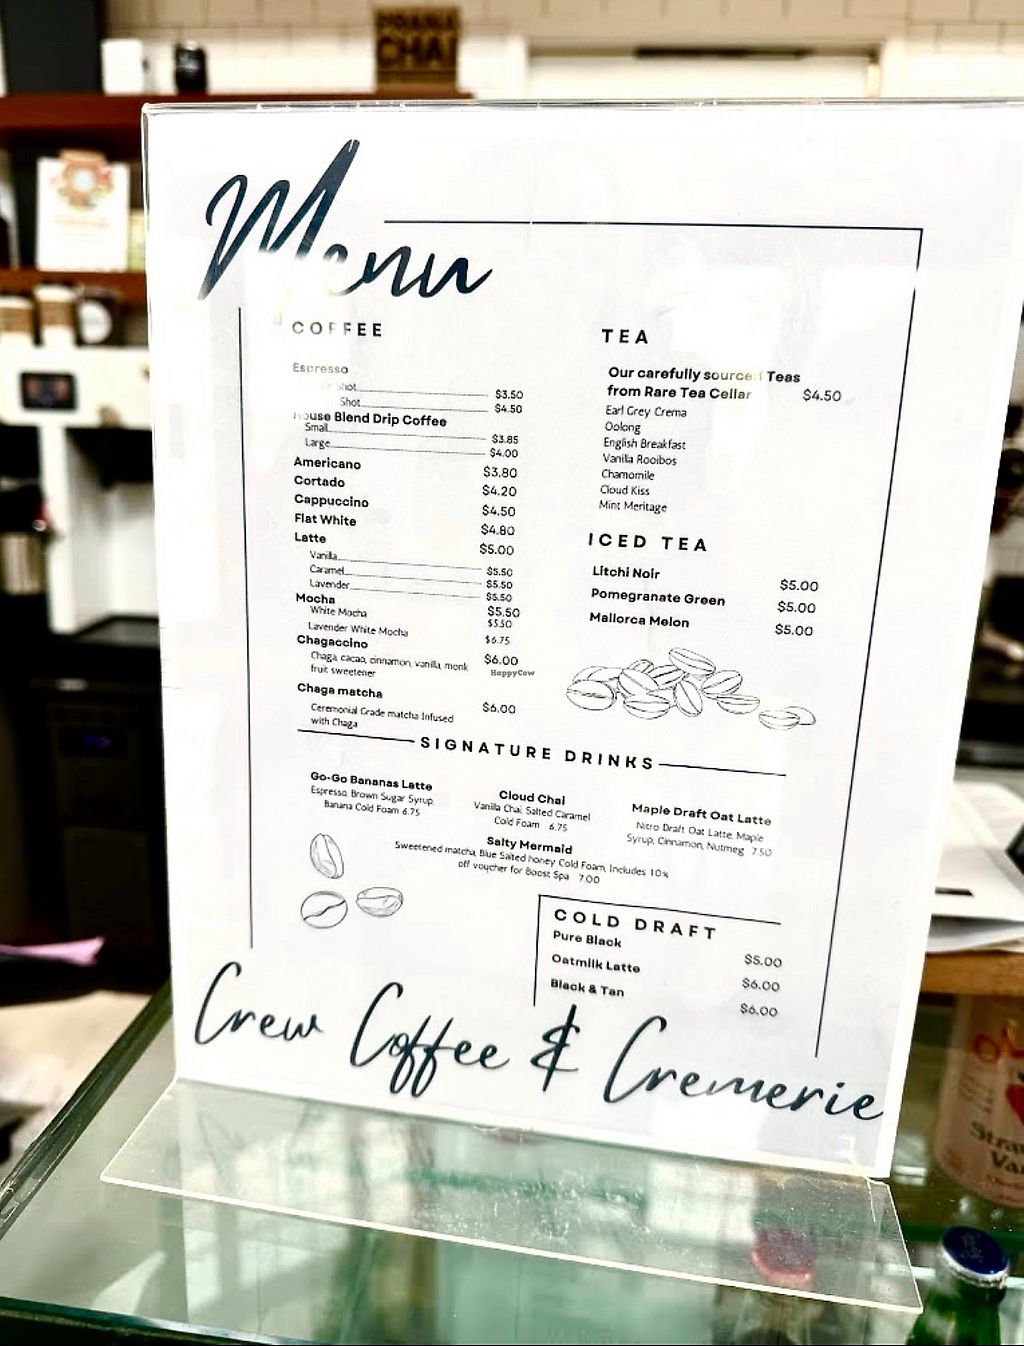 PRANA
CHAI
Menu
COFFEE
Espresso
Shot $3.50
Shot $4.50
House Blend Drip Coffee
Small $3.85
Large $4.00
Americano $3.80
Cortado $4.20
Cappuccino $4.50
Flat White $4.80
Latte $5.00
Vanilla $5.50
Caramel $5.50
Lavender $5.50
Mocha $5.50
White Mocha $5.50
Lavender White Mocha $6.75
Chagaccino $6.00
Chaga, cacao, cinnamon, vanilla, monk
fruit sweetener
HappyCow
Chaga matcha $6.00
Ceremonial Grade matcha Infused
with Chaga
TEA
Our carefully sourced Teas
from Rare Tea Cellar $4.50
Earl Grey Crema
Oolong
English Breakfast
Vanilla Rooibos
Chamomile
Cloud Kiss
Mint Meritage
ICED TEA
Litchi Noir $5.00
Pomegranate Green $5.00
Mallorca Melon $5.00
SIGNATURE DRINKS
Go-Go Bananas Latte
Espresso, Brown Sugar Syrup,
Banana Cold Foam 6.75
Cloud Chai
Vanilla Chai, Salted Caramel
Cold Foam 6.75
Maple Draft Oat Latte
Nitro Draft Oat Latte, Maple
Syrup, Cinnamon, Nutmeg 7.50
Salty Mermaid
Sweetened matcha, Blue Salted honey Cold Foam, Includes 10%
off voucher for Boost Spa 7.00
COLD DRAFT
Pure Black $5.00
Oatmilk Latte $6.00
Black & Tan $6.00
Crew Coffee & Cremerie